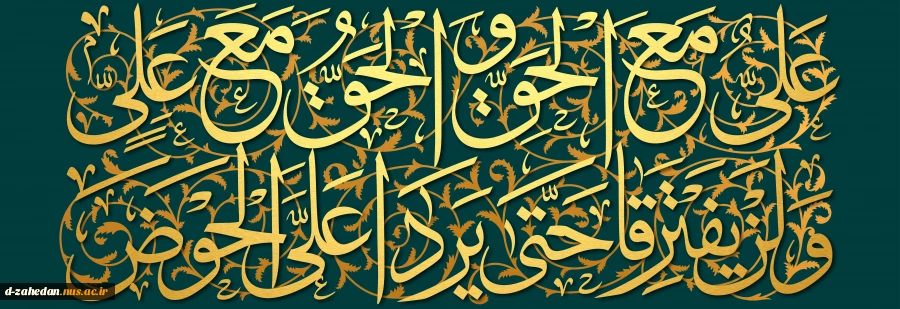 عَلِیٌّ مَعَ الْحَقِّ وَ الْحَقُّ مَعَ عَلِیٍّ
وَ لَنْ یَفْتَرِقَا حَتّیٰ یَرِدَا عَلَیَّ الْحَوْضَ
d-zahedan.nus.ac.ir